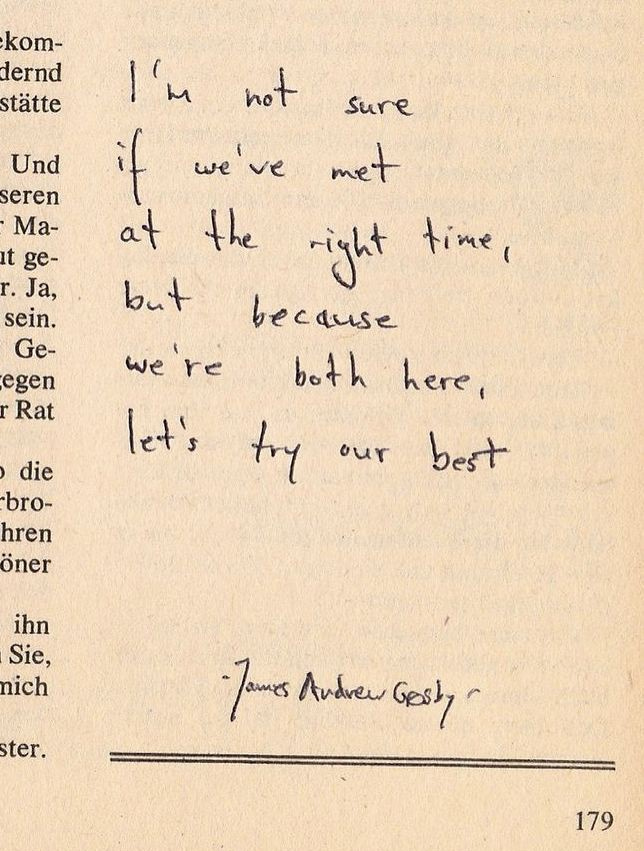 ekom-
dernd
stätte
Und
seren
r Ma-
ut ge-
r. Ja,
sein.
Ge-
gegen
r Rat
o die
rbro-
hren
öner
ihn
n Sie,
mich
ster.
I'm not sure
if we've met
at the right time,
but because
we're both here,
let's try our best
-James Andrew Crosby
179